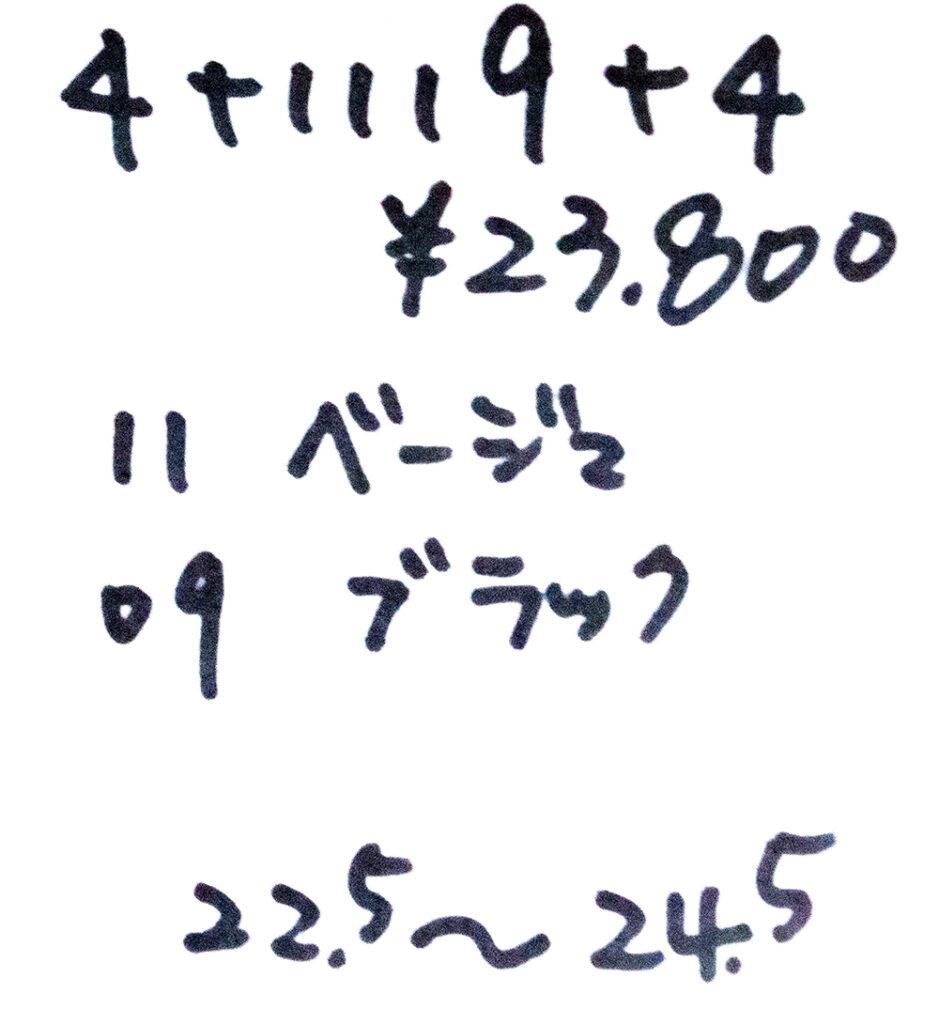 4+1119+4
¥23.800
11 ベージュ
09 ブラック
22.5～24.5